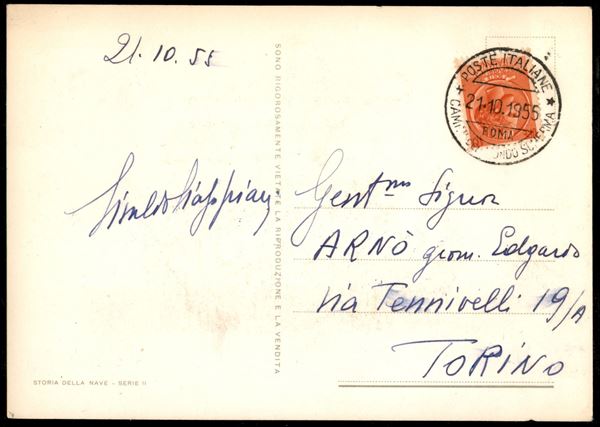 21.10.55
SONO RIGOROSAMENTE VIETATE LA RIPRODUZIONE E LA VENDITA
POSTE ITALIANE
21-10.1955
ROMA
SCHERMA
Gent.mo Signor
ARNÒ geom. Edgardo
via Tennivelli 19/A
TORINO
STORIA DELLA NAVE - SERIE II